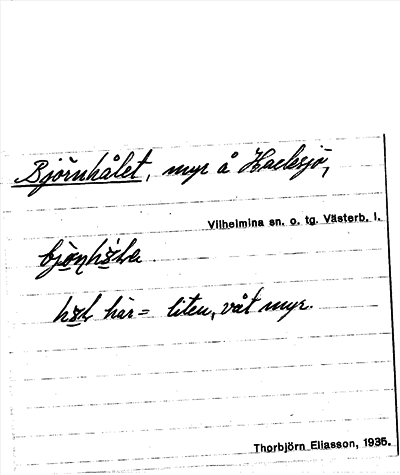 Björnhålet, myr å Hacksjö,
Vilhelmina sn. o. tg. Västerb. l.
här = liten, våt myr.
Thorbjörn Eliasson, 1935.